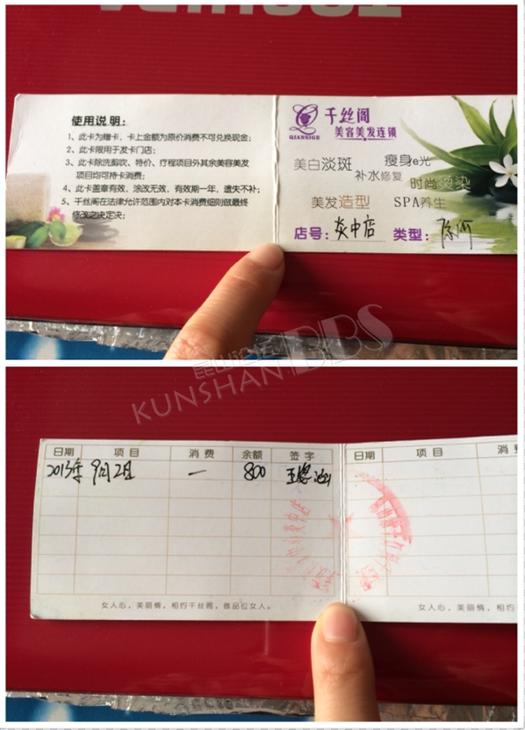 使用说明：
1、此卡为赠卡，卡上金额为原价消费不可兑换现金；
2、此卡限用于发卡门店；
3、此卡除洗剪吹、特价、疗程项目外其余美容美发
项目均可持卡消费；
4、此卡盖章有效、涂改无效、有效期一年，遗失不补；
5、千丝阁在法律允许范围内对本卡消费细则做最终
修改之决定决；
千丝阁
QIANSIGE
美容美发连锁
美白淡斑
瘦身e光
补水修复
时尚烫染
美发造型
SPA养生
店号：
类型：
KUNSHAN BBS
日期 项目 消费 余额 签字
2013年 9月2日 — 800
日期 项目
女人心，美丽情，相约千丝阁，做品位女人。
女人心，美丽情，相约千